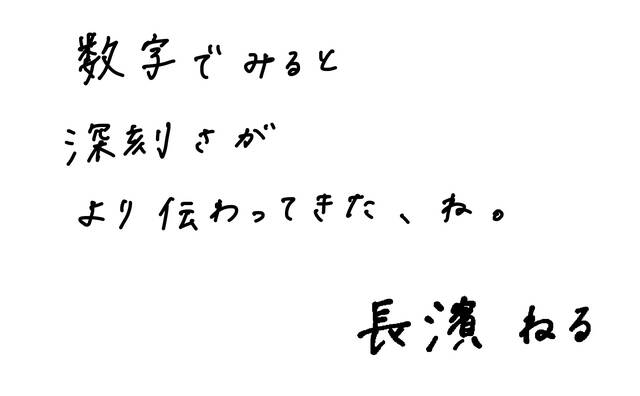 数字でみると
深刻さが
より伝わってきた、ね。
長濱ねる